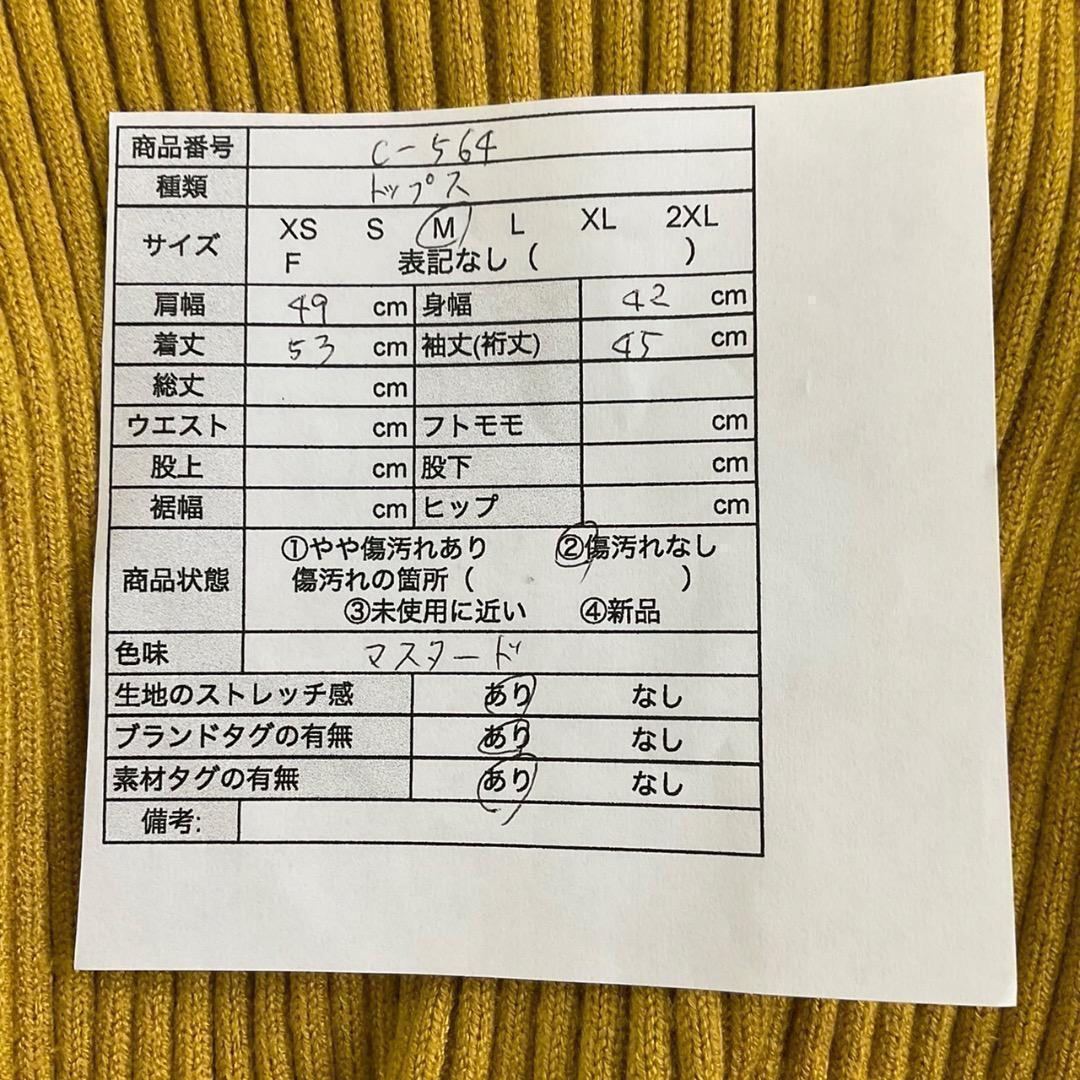 商品番号 C-564
種類 トップス
サイズ XS S M L XL 2XL
F 表記なし ( )
肩幅 49 cm 身幅 42 cm
着丈 53 cm 袖丈(裄丈) 45 cm
総丈 cm
ウエスト cm フトモモ cm
股上 cm 股下 cm
裾幅 cm ヒップ cm
商品状態 ①やや傷汚れあり ②傷汚れなし
傷汚れの箇所 ( )
③未使用に近い ④新品
色味 マスタード
生地のストレッチ感 あり なし
ブランドタグの有無 あり なし
素材タグの有無 あり なし
備考: